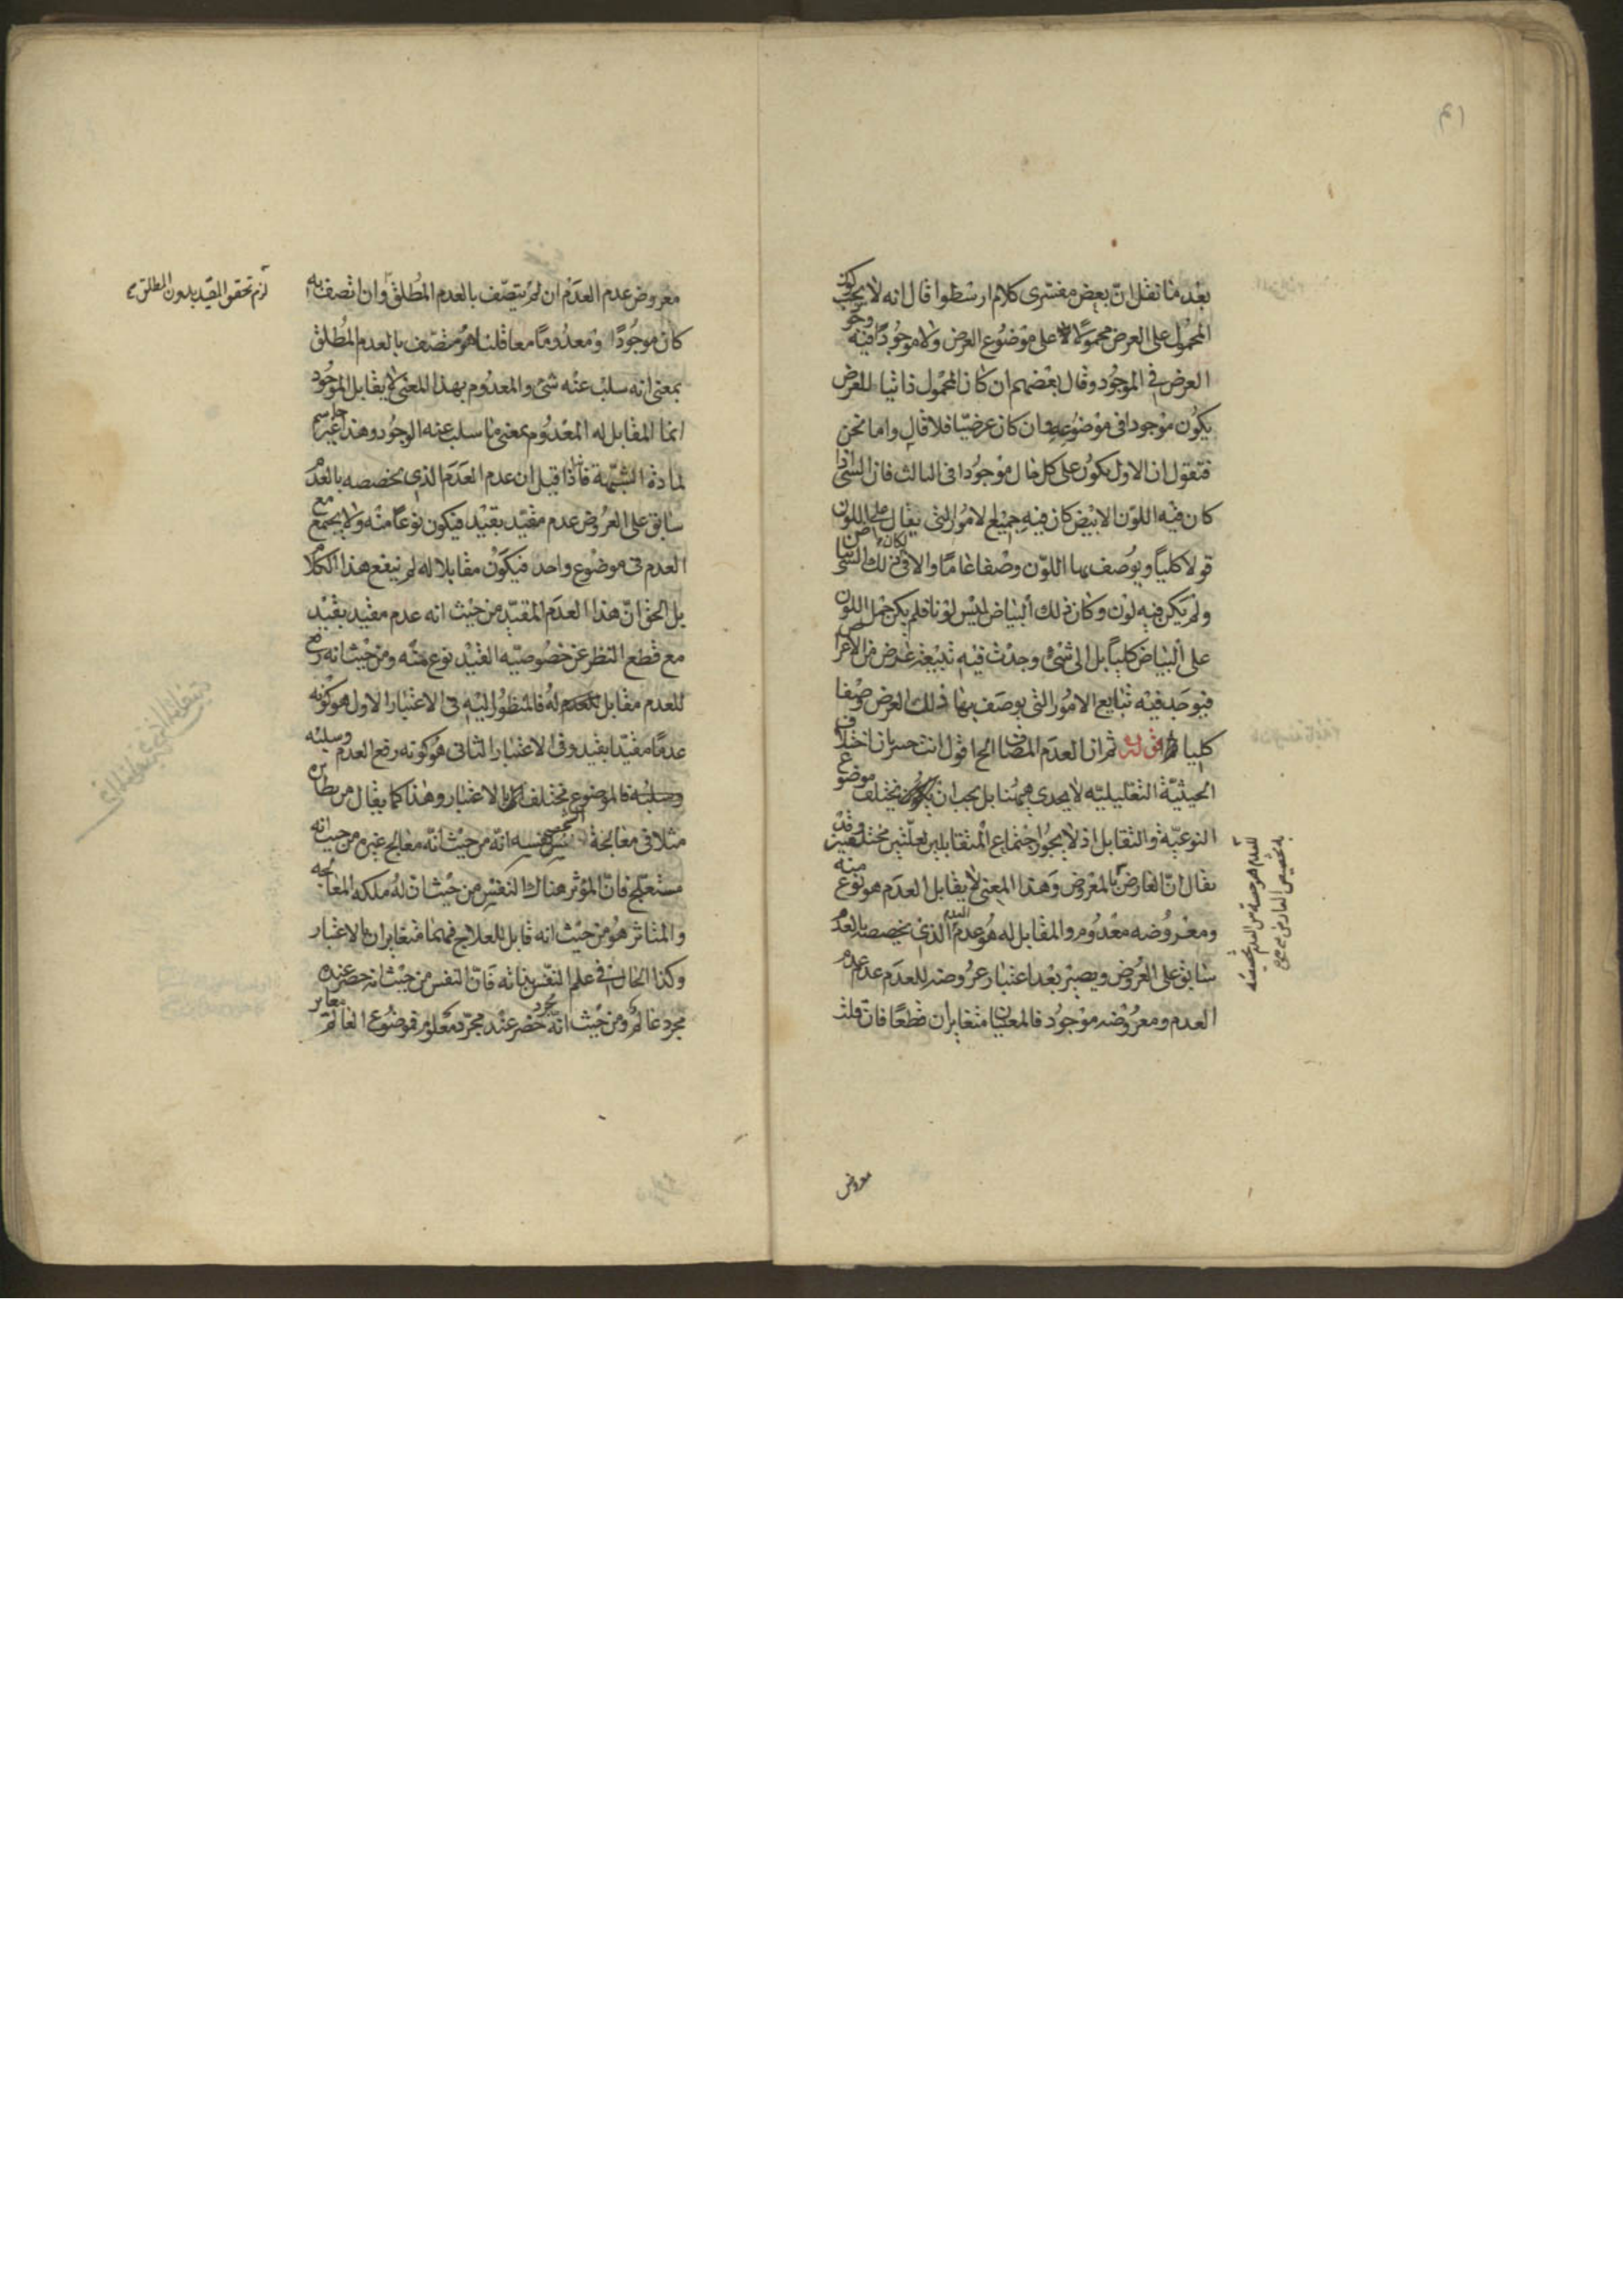 بعد ما نقل ان بعض مفسرى كلام ارسطوا قال انه لا يجب كون
المحمول على العرض محمولا على موضوع العرض ولا موجودا فيه وجود
العرض فى الموجود وقال بعضهم ان كان المحمول ذاتيا للعرض
يكون موجودا فى موضوعه وان كان عرضيا فلا قال واما نحن
فنقول ان الاول يكون على كل حال موجودا فى الثالث فان الشئ اذا
كان فيه اللون الابيض كان فيه جميع الامور التى يقال على اللون
قولا كليا ويوصف بها اللون وصفا عاما والا لكان فى ذلك الشئ بياض
ولم يكن فيه لون وكان ذلك البياض ليس لونا فلم يكن حمل اللون
على البياض كليا بل اى شئ وجدت فيه طبيعة عرض من الاعراض
فيوجد فيه طبايع الامور التى يوصف بها ذلك العرض وصفا
كليا قوله ثم ان العدم المضاف الخ اقول انت خبير بان اختلاف
الحيثية التعليلية لا يجدى ههنا بل يجب ان يختلف موضوع
النوعية والتقابل اذ لا يجوز اجتماع المتقابلين بعلتين مختلفتين وقد
يقال ان العارض للمعروض وهذا المعنى لا يقابل العدم هو نوع منه
ومعروضه معدوم والمقابل له هو عدم العدم الذى تخصصه بالعدم
سابق على العروض ويصير بعد اعتبار عروضه للعدم عدم عدم
العدم ومعروضه موجود فالمعنيان متغايران قطعا فان قلت
للعدم هو حصة من العدم
تخصيص العارض
معروض
معروض عدم العدم ان لم يتصف بالعدم المطلق وان اتصف به
لزم تحقق المقيد بدون المطلق
كان موجودا ومعدوما معا قلنا هو متصف بالعدم المطلق
بمعنى انه سلب عنه شئ والمعدوم بهذا المعنى لا يقابل الموجود
انما المقابل له المعدوم بمعنى ما سلب عنه الوجود وهذا غير حاسم
لمادة الشبهة فاذا قيل ان عدم العدم الذى تخصصه بالعدم
سابق على العروض عدم مقيد بقيد فيكون نوعا منه ولا يجتمع مع
العدم فى موضوع واحد فيكون مقابلا له لم ينفع هذا الكلام
بل الحق ان هذا العدم المقيد من حيث انه عدم مقيد بقيد
مع قطع النظر عن خصوصية القيد نوع منه ومن حيث انه رفع
للعدم مقابل له فالمنظور اليه فى الاعتبار الاول هو كونه
عدما مقيدا بقيد وفى الاعتبار الثانى هو كونه رفع العدم وسلبه
فالموضوع مختلف بالاعتبار وهذا كما يقال من نظائره
مثلا فى معالجة الشخص نفسه انه من حيث انه معالج غيره من حيث انه
مستعلج فان المؤثر هناك النفس من حيث ان له ملكة المعالجة
والمتاثر هو من حيث انه قابل للعلاج فهما متغايران بالاعتبار
وكذا الحال فى علم النفس بذاته فان النفس من حيث انه حضر عنده
مجرد عالم ومن حيث انه مجرد حضر عند مجرد معلوم فموضوع العالم مغاير